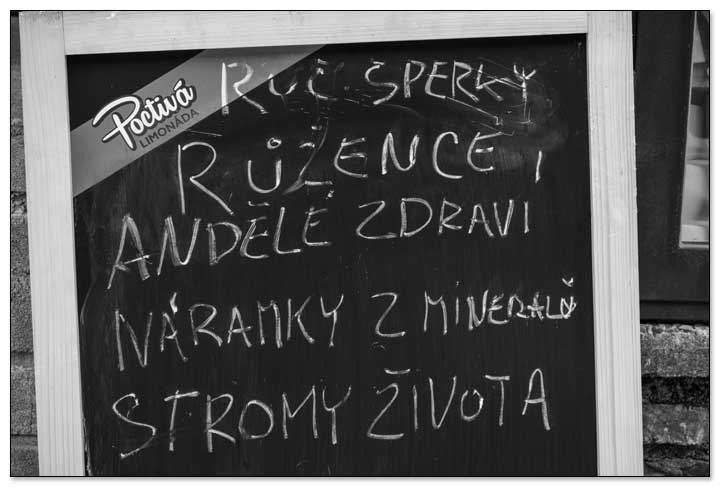 Poctivá
LIMONÁDA
RUČ. ŠPERKY
RŮŽENCE,
ANDĚLÉ ZDRAVI
NÁRAMKY Z MINERALŮ
STROMY ŽIVOTA